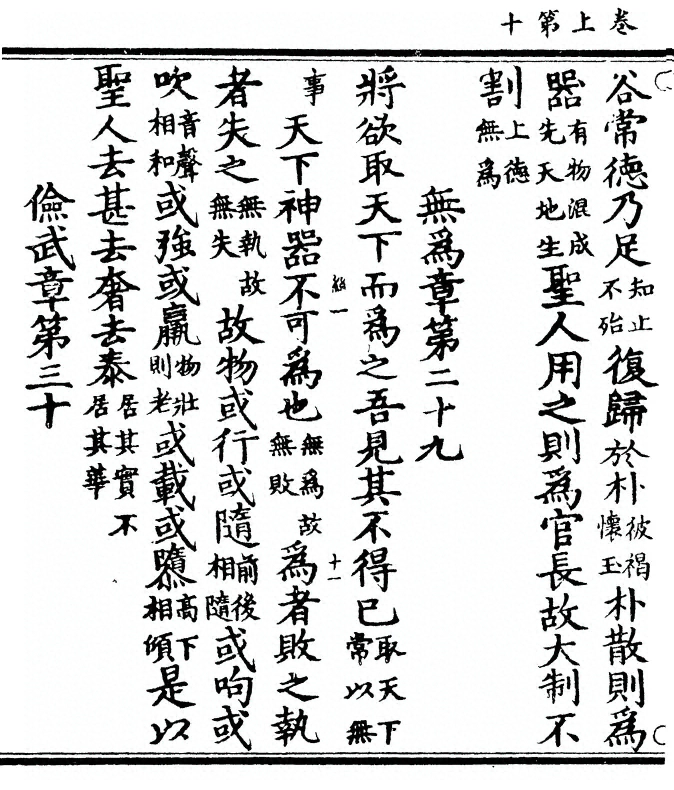 卷上第十
谷常德乃足知止不殆復歸於朴被褐懷玉朴散則爲
器有物混成先天地生聖人用之則爲官長故大制不
割上德無爲
無爲章第二十九
將欲取天下而爲之吾見其不得已取天下常以無
十一
事天下神器不可爲也無爲故無敗爲者敗之執
者失之無執故無失故物或行或隨前後相隨或呴或
吹音聲相和或強或羸物壯則老或載或隳高下相傾是以
聖人去甚去奢去泰居其實不居其華
儉武章第三十